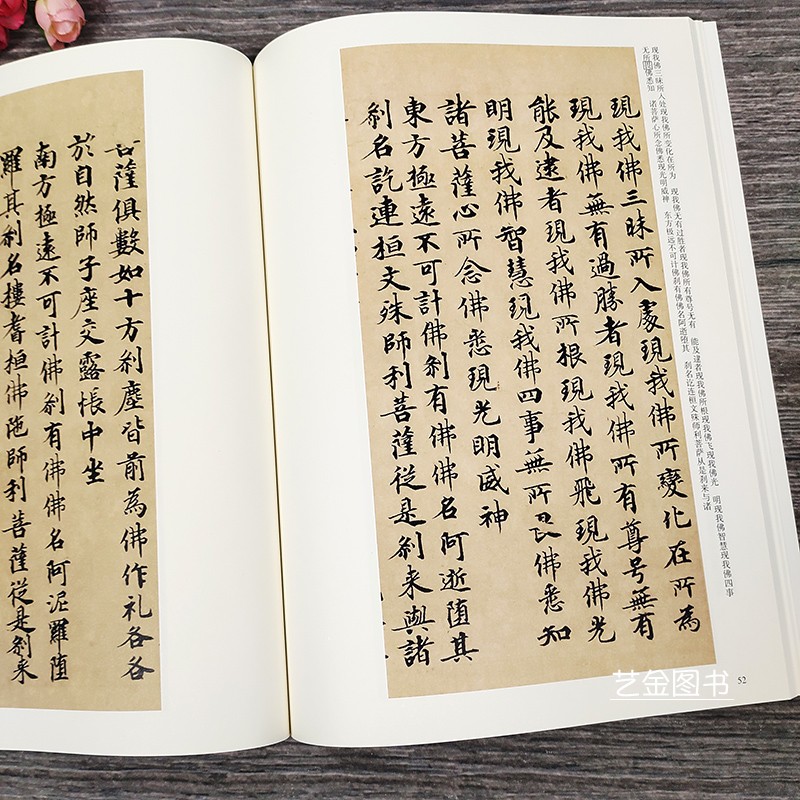 现我佛三昧所入处现我佛所变化在所为 现我佛无有过胜者现我佛所有尊号无有 能及逮者现我佛所根现我佛飞现我佛光 明现我佛智慧现我佛四事
无所佛悉知 诸菩萨心所念佛悉现光明威神 东方极远不可计佛刹有佛佛名阿逝堕其 刹名讫连桓文殊师利菩萨从是刹来与诸
現我佛三昧所入處現我佛所變化在所為
現我佛無有過勝者現我佛所有尊号無有
能及逮者現我佛所根現我佛飛現我佛光
明現我佛智慧現我佛四事無所佛悉知
諸菩薩心所念佛悉現光明威神
東方極遠不可計佛刹有佛佛名阿逝堕其
刹名訖連桓文殊師利菩薩從是刹来與諸
52
菩薩俱數如十方刹塵皆前為佛作礼各各
於自然師子座交露帳中坐
南方極遠不可計佛刹有佛佛名阿泥羅堕
羅其刹名樓耆桓佛陁師利菩薩從是刹来
艺金图书